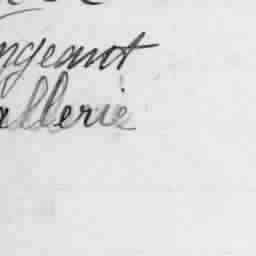 ngeant
allerie